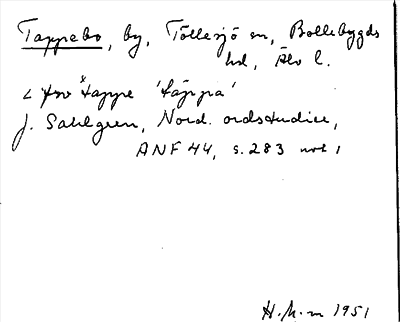 Tappebo, by, Töllesjö sn, Bollebygds
hd, Älvb l.
< fsv *tappe 'täppa'
J. Sahlgren, Nord. ordstudier,
ANF 44, s. 283 not 1
1951